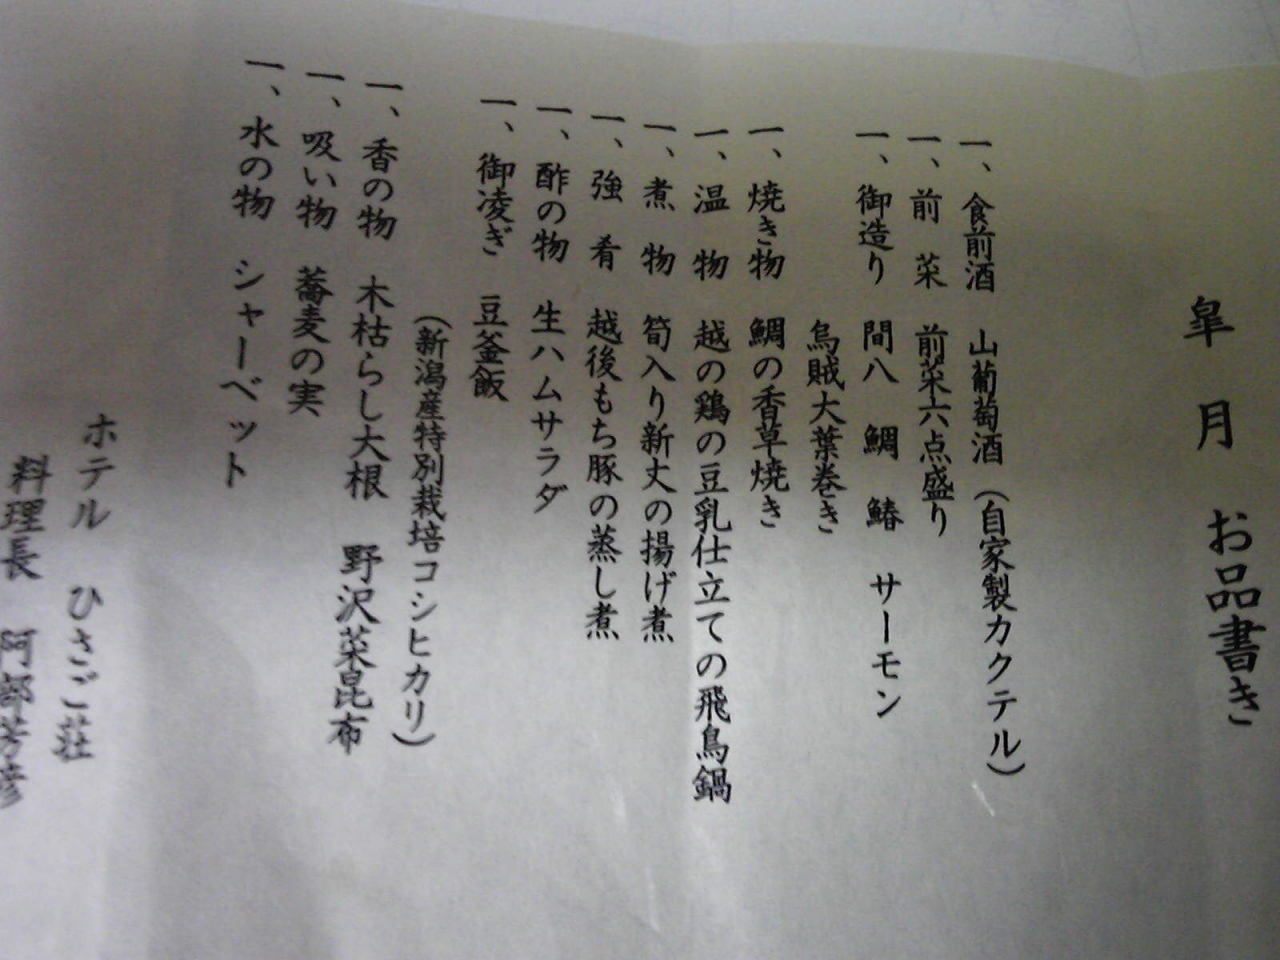 皐月　お品書き
一、食前酒　山葡萄酒（自家製カクテル）
一、前菜　前菜六点盛り
一、御造り　間八　鯛　鰆　サーモン
烏賊大葉巻き
一、焼き物　鯛の香草焼き
一、温物　越の鶏の豆乳仕立ての飛鳥鍋
一、煮物　筍入り新丈の揚げ煮
一、強肴　越後もち豚の蒸し煮
一、酢の物　生ハムサラダ
一、御凌ぎ　豆釜飯
（新潟産特別栽培コシヒカリ）
一、香の物　木枯らし大根　野沢菜昆布
一、吸い物　蕎麦の実
一、水の物　シャーベット
ホテル　ひさご荘
料理長　阿部芳彦